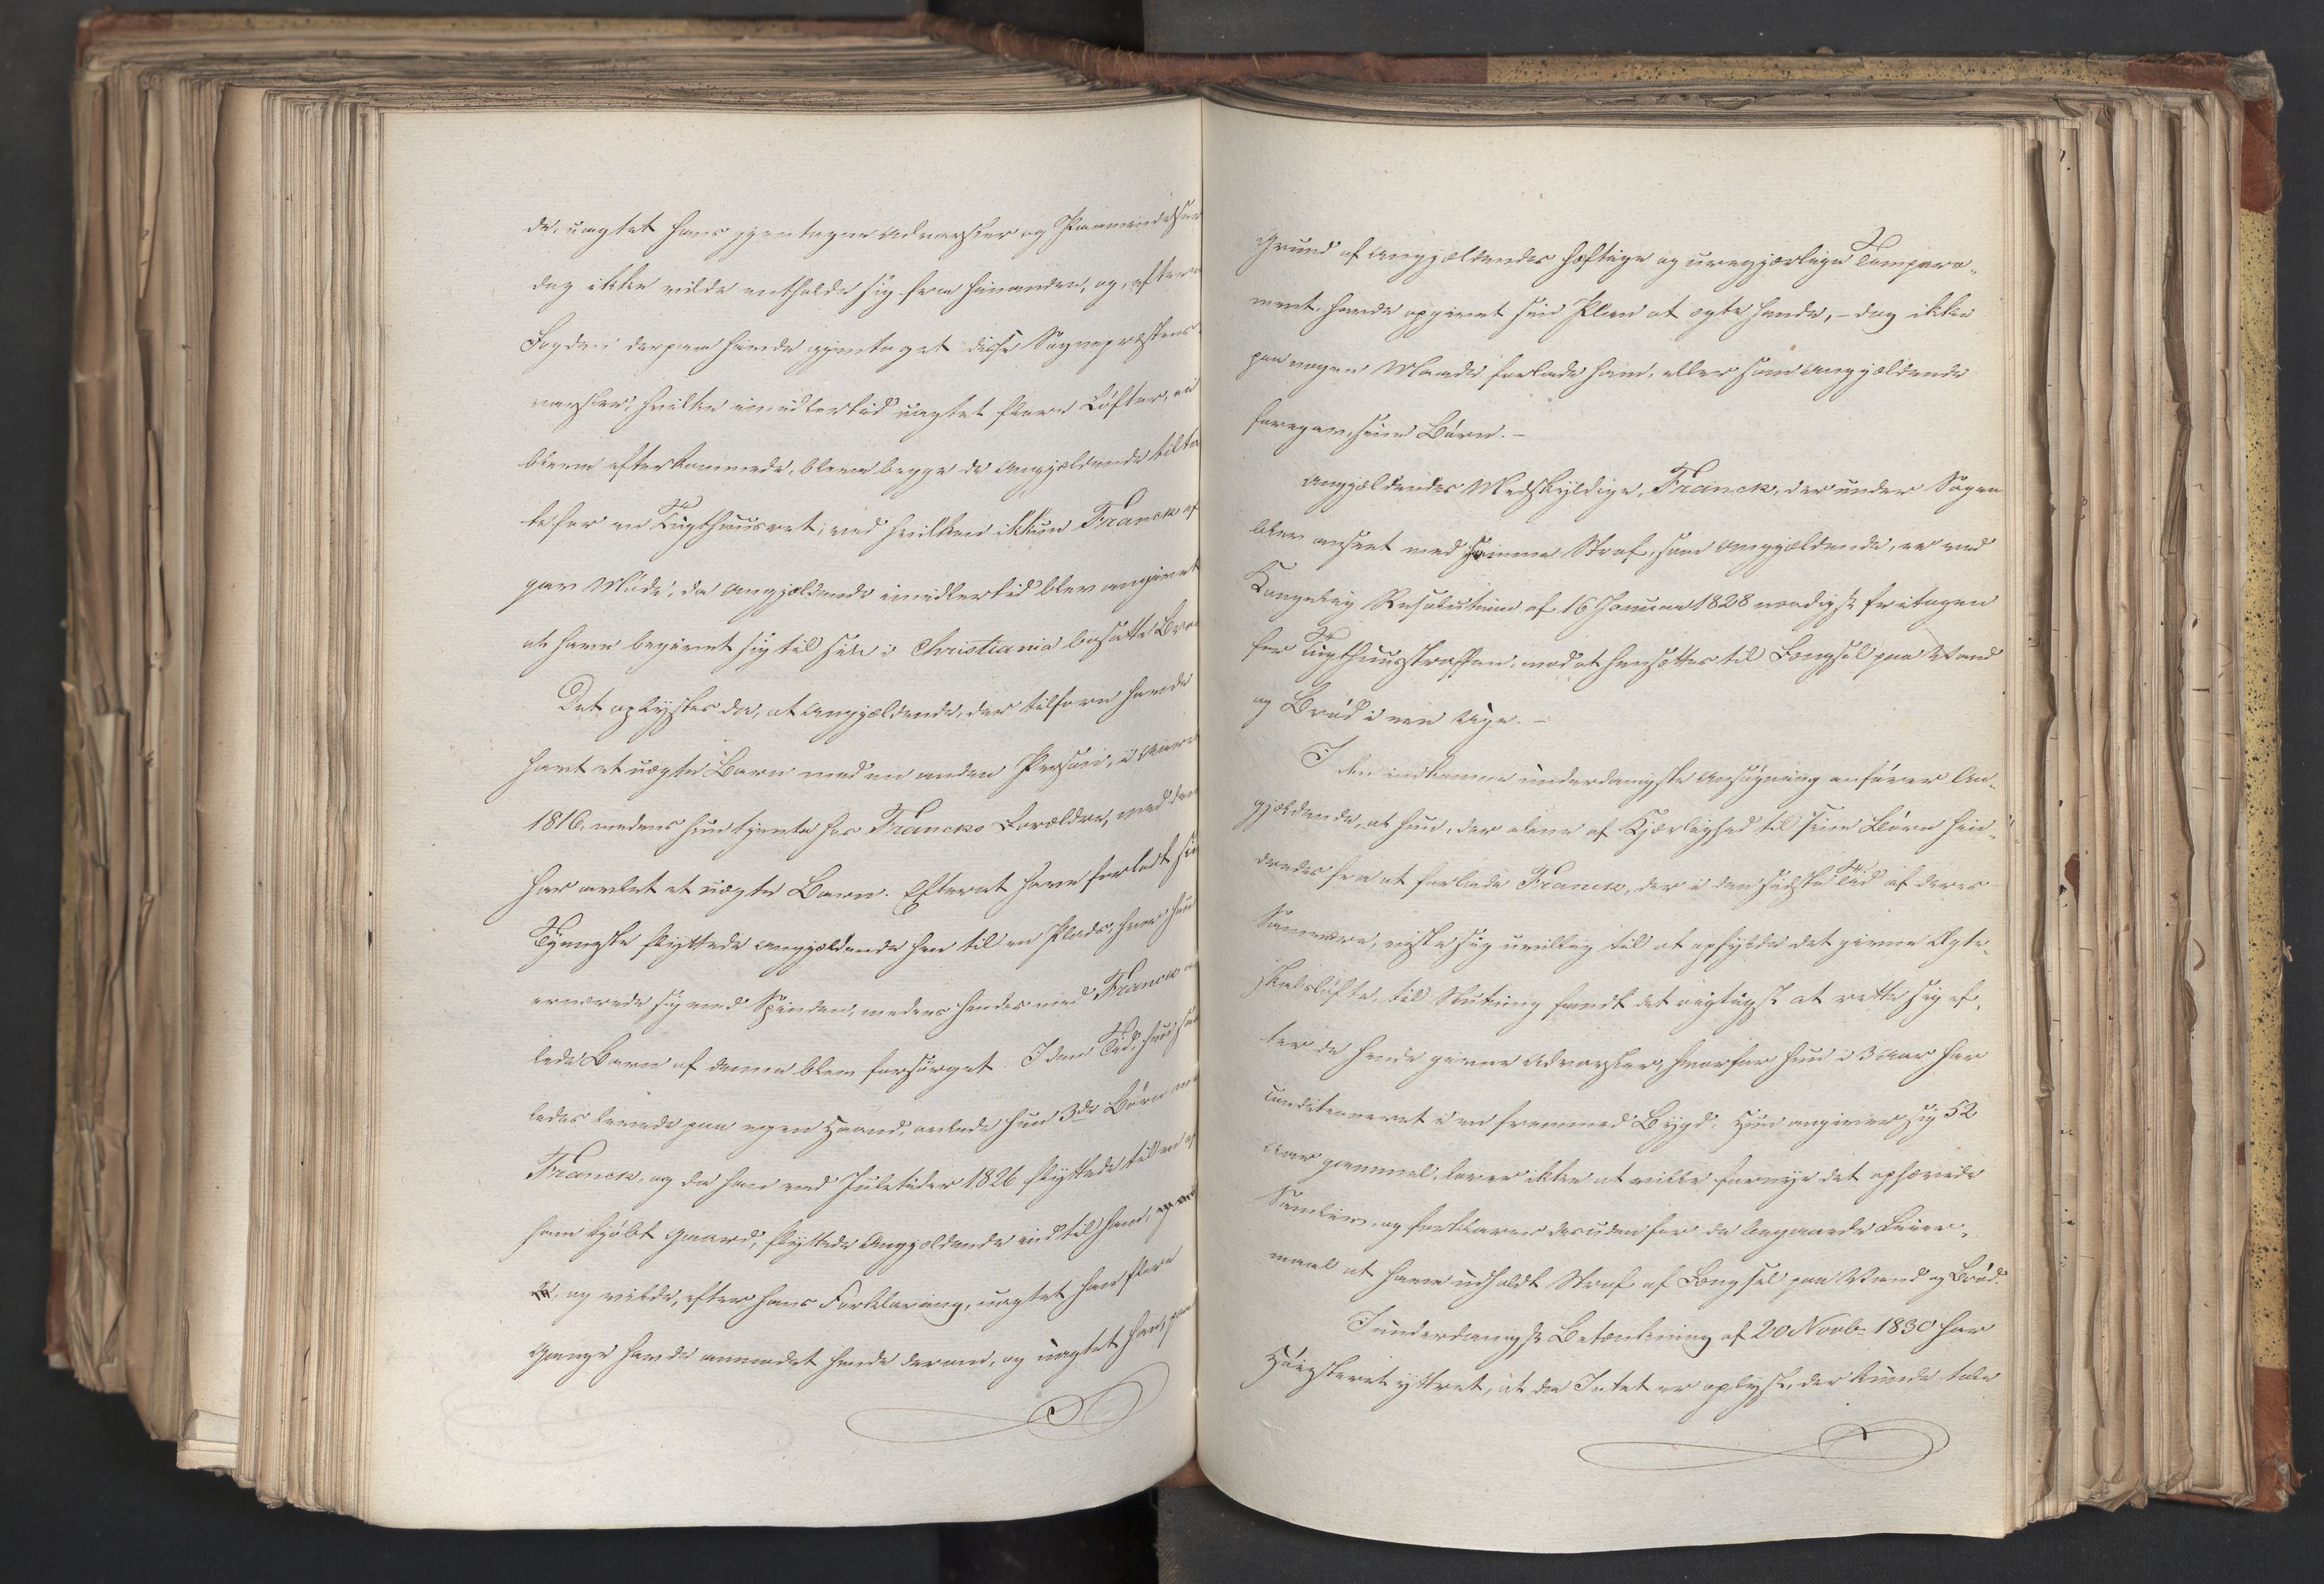 de, uagtet hans gjentagne Advarsler og Paamindelser
dog ikke vilde entholde sig fra hinanden, og, efterat
Fogden derpaa havde gjentaget disse Sognepræstens
varsler, hvilke imidlertid uagtet flere Løfter, ei
bleve efterkommede, bleve begge de Angjældende tilta
te for en Tugthuusret, ved hvilken ikkun Franck af
gav Møde, da Angjældende imidlertid blev angivet
at have begivet sig til sin i Christiania bosatte Bro
Det oplystes da, at Angjældende, der tilforn havde
havt et uægte Barn med en anden Person, i Aaret
1816, medens hun tjente hos Francks Forældre, med den
har avlet et uægte Barn. Efterat have forladt sin
Tjeneste flyttede Angjældende hen til en Plads, hvor hun
ernærede sig med Spinden, medens hendes med Franck av
lede Barn af denne blev forsørget. I den Tid, hun saa
ledes levede paa egen Haand, avlede hun 3de Børn med
Franck, og da han ved Juletider 1826 flyttede til en af
ham kjøbt Gaard, flyttede Angjældende ind til ham,
og vilde, efter hans Forklaring, uagtet han flere
Gange havde anmodet hende derom, og uagtet han, paa
Grund af Angjældendes hæftige og uregjerlige Tempera-
ment, havde opgivet sin Plan at ægte hende, - dog ikke
paa nogen Maade forlade ham, eller som Angjældende
foregav, sine Børn. -
Angjældendes Medskyldige, Franck, der under Sagen
blev anseet med samme Straf, som Angjældende, er ved
Kongelig Resolution af 16 Januar 1828 naadigst fritagen
for Tugthuusstraffen, mod at hensættes til Fængsel paa Vand
og Brød i een Uge. -
I den indkomne underdanigste Ansøgning anfører An-
gjældende, at hun, der alene af Kjærlighed til sine Børn hin-
dredes fra at forlade Franck, der i den sidste Tid af deres
Samvære, viste sig uvillig til at opfylde det givne Ægte-
skabsløfte, til Slutning fandt det rigtigst at rette sig ef-
ter de hende givne Advarsler, hvorfor hun i 3 Aar har
conditioneret i en fremmed Bygd. Hun angiver sig 52
Aar gammel, lover ikke at ville fornye det ophævede
Samliv, og forklarer desuden for de begaaede Leier-
maal at have udholdt Straf af Fængsel paa Vand og Brød.
I underdanigst Betænkning af 20 Novbr 1830 har
Høiesteret yttret, at da Intet er oplyst, der kunde tale